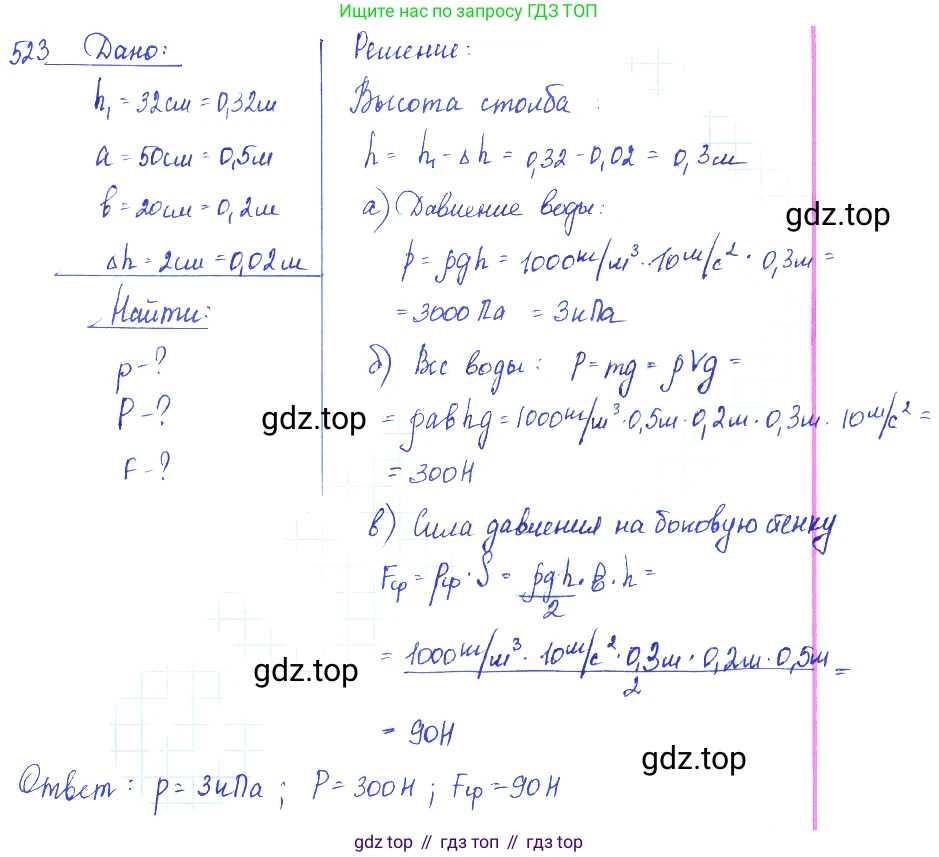 Ищите нас по запросу ГДЗ ТОП
523 Дано:
h₁ = 32см = 0,32м
a = 50см = 0,5м
в = 20см = 0,2м
Δh = 2см = 0,02м
Найти:
p - ?
P - ?
F - ?
Решение:
Высота столба :
h = h₁ - Δh = 0,32 - 0,02 = 0,3м
а) Давление воды:
gdz.top
p = ρgh = 1000кг/м³ · 10м/с² · 0,3м =
= 3000 Па = 3кПа
б) Вес воды: P = mg = ρVg =
gdz.top
= ρaвhg = 1000кг/м³ · 0,5м · 0,2м · 0,3м · 10м/с² =
= 300Н
в) Сила давления на боковую стенку
Fср = pср · S = ρgh/2 · в · h =
= 1000кг/м³ · 10м/с² · 0,3м · 0,2м · 0,5м / 2 =
gdz.top
= 90Н
gdz.top
Ответ: p = 3кПа; P = 300Н; Fср = 90Н
gdz.top // гдз топ // gdz.top